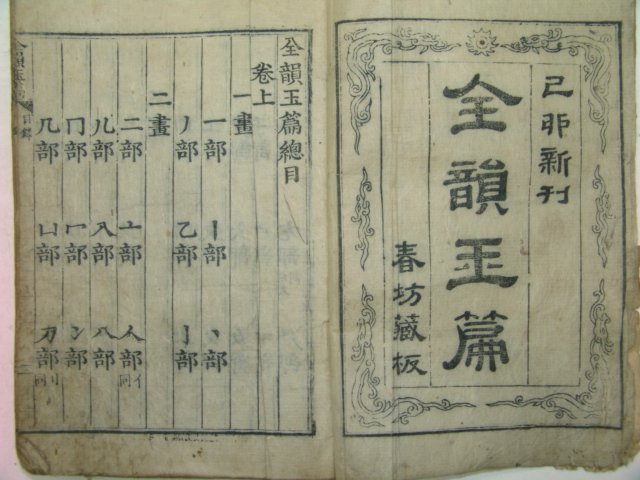 己卯新刊
全韻玉篇
春坊藏板
全韻玉篇總目
卷上
一畫
一部 丨部 丶部
丿部 乙部 亅部
二畫
二部 亠部 人部 亻同
儿部 入部 八部
冂部 冖部 冫部
几部 凵部 刀部 刂同
全韻玉篇
目錄